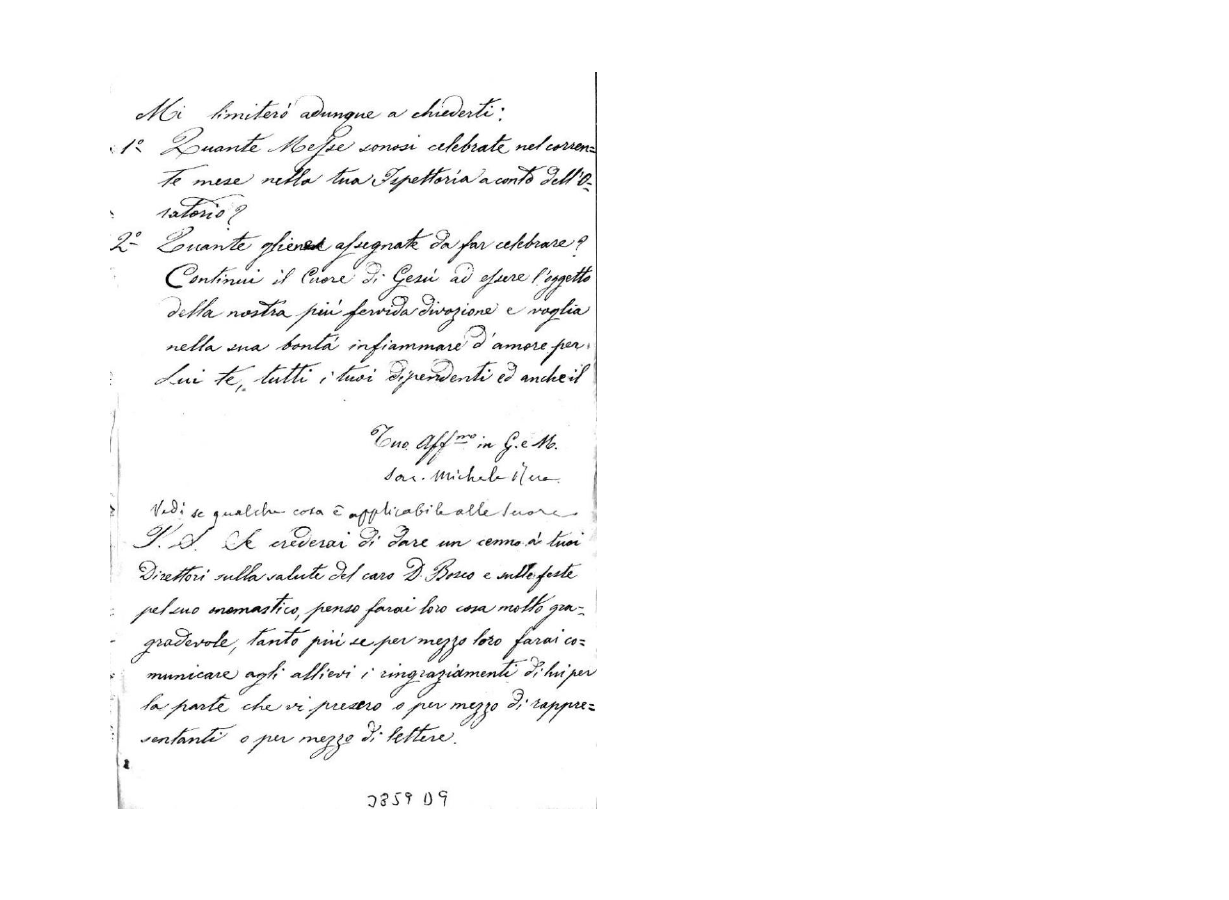 Mi limiterò adunque a chiederti:
1º Quante Messe sonosi celebrate nel corren=
te mese nella tua Ispettoria a conto dell'O=
ratorio?
2º Quante assegnate da far celebrare?
Continui il Cuore di Gesù ad essere l'oggetto
della nostra più fervida divozione e voglia
nella sua bontà infiammare d'amore per
Lui te, tutti i tuoi dipendenti ed anche il
Tuo Aff.mo in G. e M.
Sac. Michele Rua
Vedi se qualche cosa è applicabile alle Suore
P. S. Se crederai di dare un cenno a' tuoi
Direttori sulla salute del caro D. Bosco e sulle feste
pel suo onomastico, penso farai loro cosa molto gra=
gradevole, tanto più se per mezzo loro farai co=
municare agli allievi i ringraziamenti di lui per
la parte che vi presero o per mezzo di rappre=
sentanti o per mezzo di lettere.
3859 D9